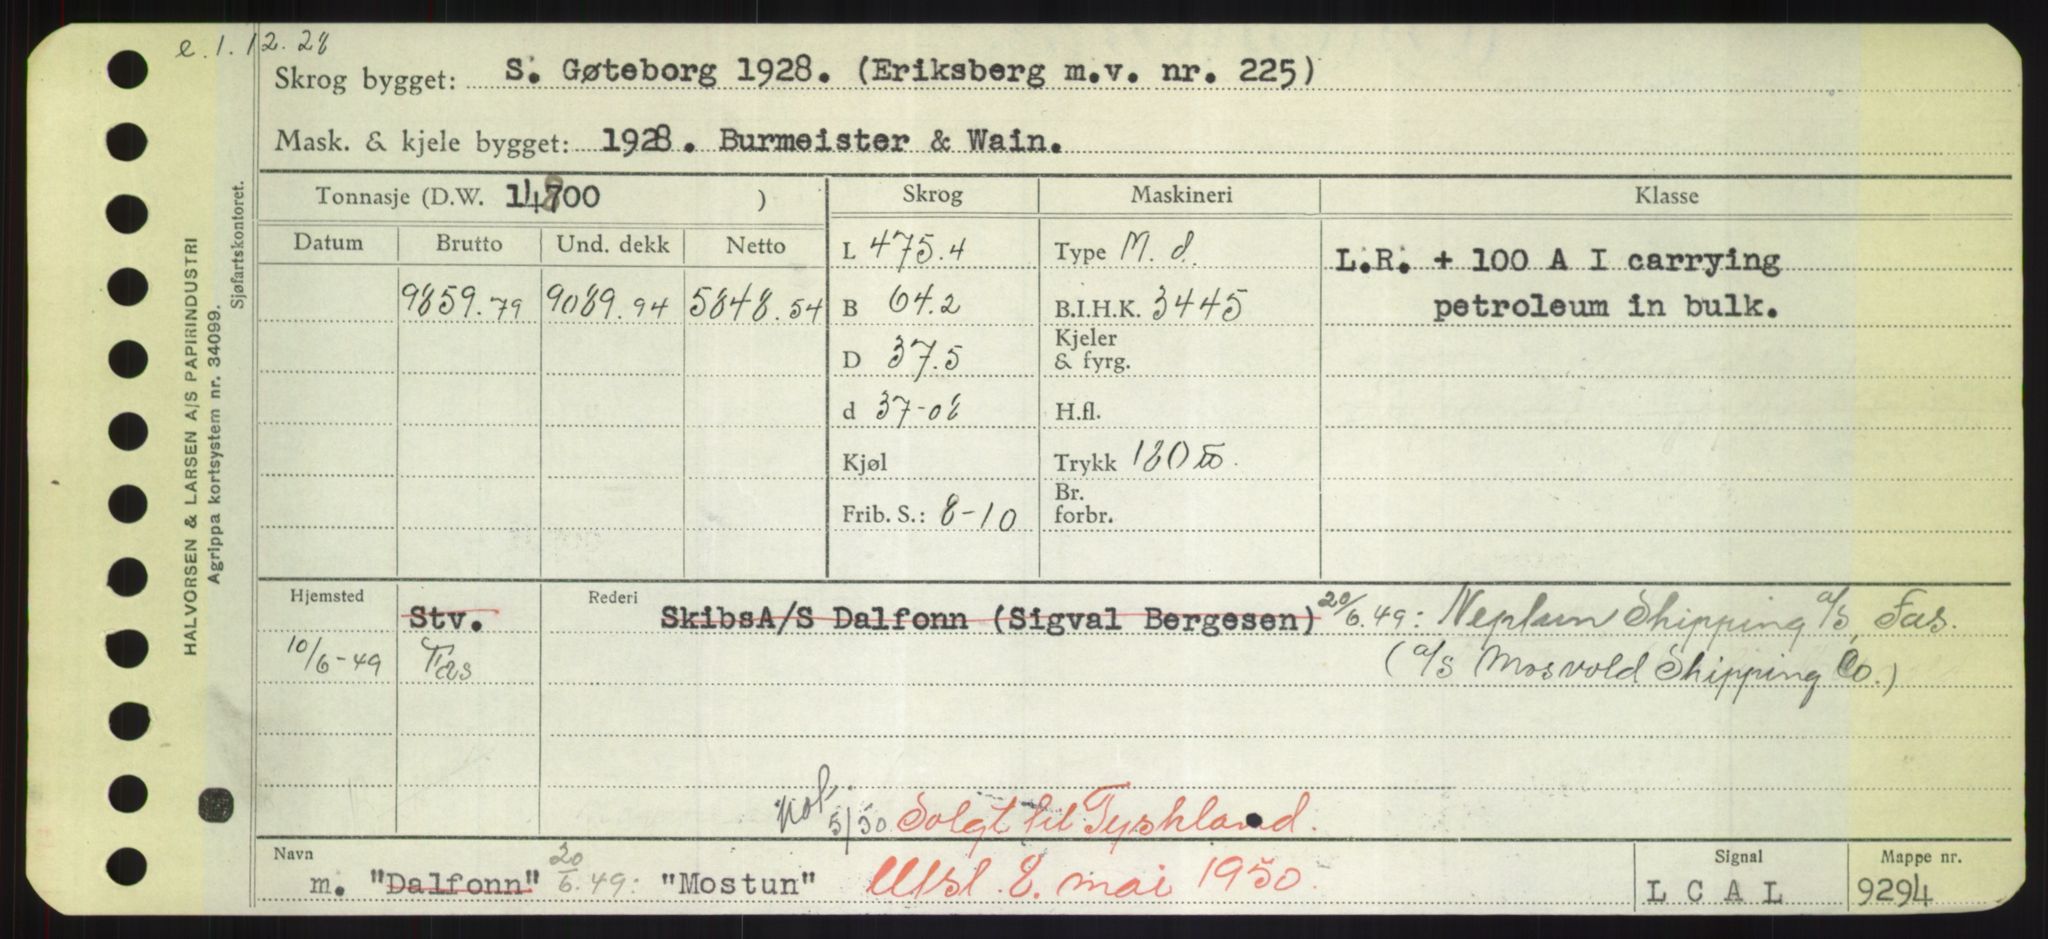 e. 1. 12. 28
Skrog bygget: S. Gøteborg 1928. (Eriksberg m.v. nr. 225)
Mask. & kjele bygget: 1928. Burmeister & Wain.
Tonnasje (D.W. 14800 ) Skrog Maskineri Klasse
Datum Brutto Und. dekk Netto L 475.4 Type M. d. L.R. + 100 A I carrying
9859.79 9089.94 5848.54 B 64.2 B.I.H.K. 3445 petroleum in bulk.
D 37.5 Kjeler & fyrg.
d 37-08 H.fl.
Kjøl Trykk 180
Frib. S.: 8-10 Br. forbr.
Hjemsted Stv. Rederi SkibsA/S Dalfonn (Sigval Bergesen) 20/6.49: Neptun Shipping a/s, Fas.
10/6-49 Fas (a/s Mosvold Shipping Co.)
5/50 Solgt til Tyskland.
Navn m. "Dalfonn" 20/6.49: "Mostun" Utsl. 8. mai 1950. Signal L C A L Mappe nr. 9294
HALVORSEN & LARSEN A/S PAPIRINDUSTRI
Agrippa kortsystem nr. 34099.
Sjøfartskontoret.